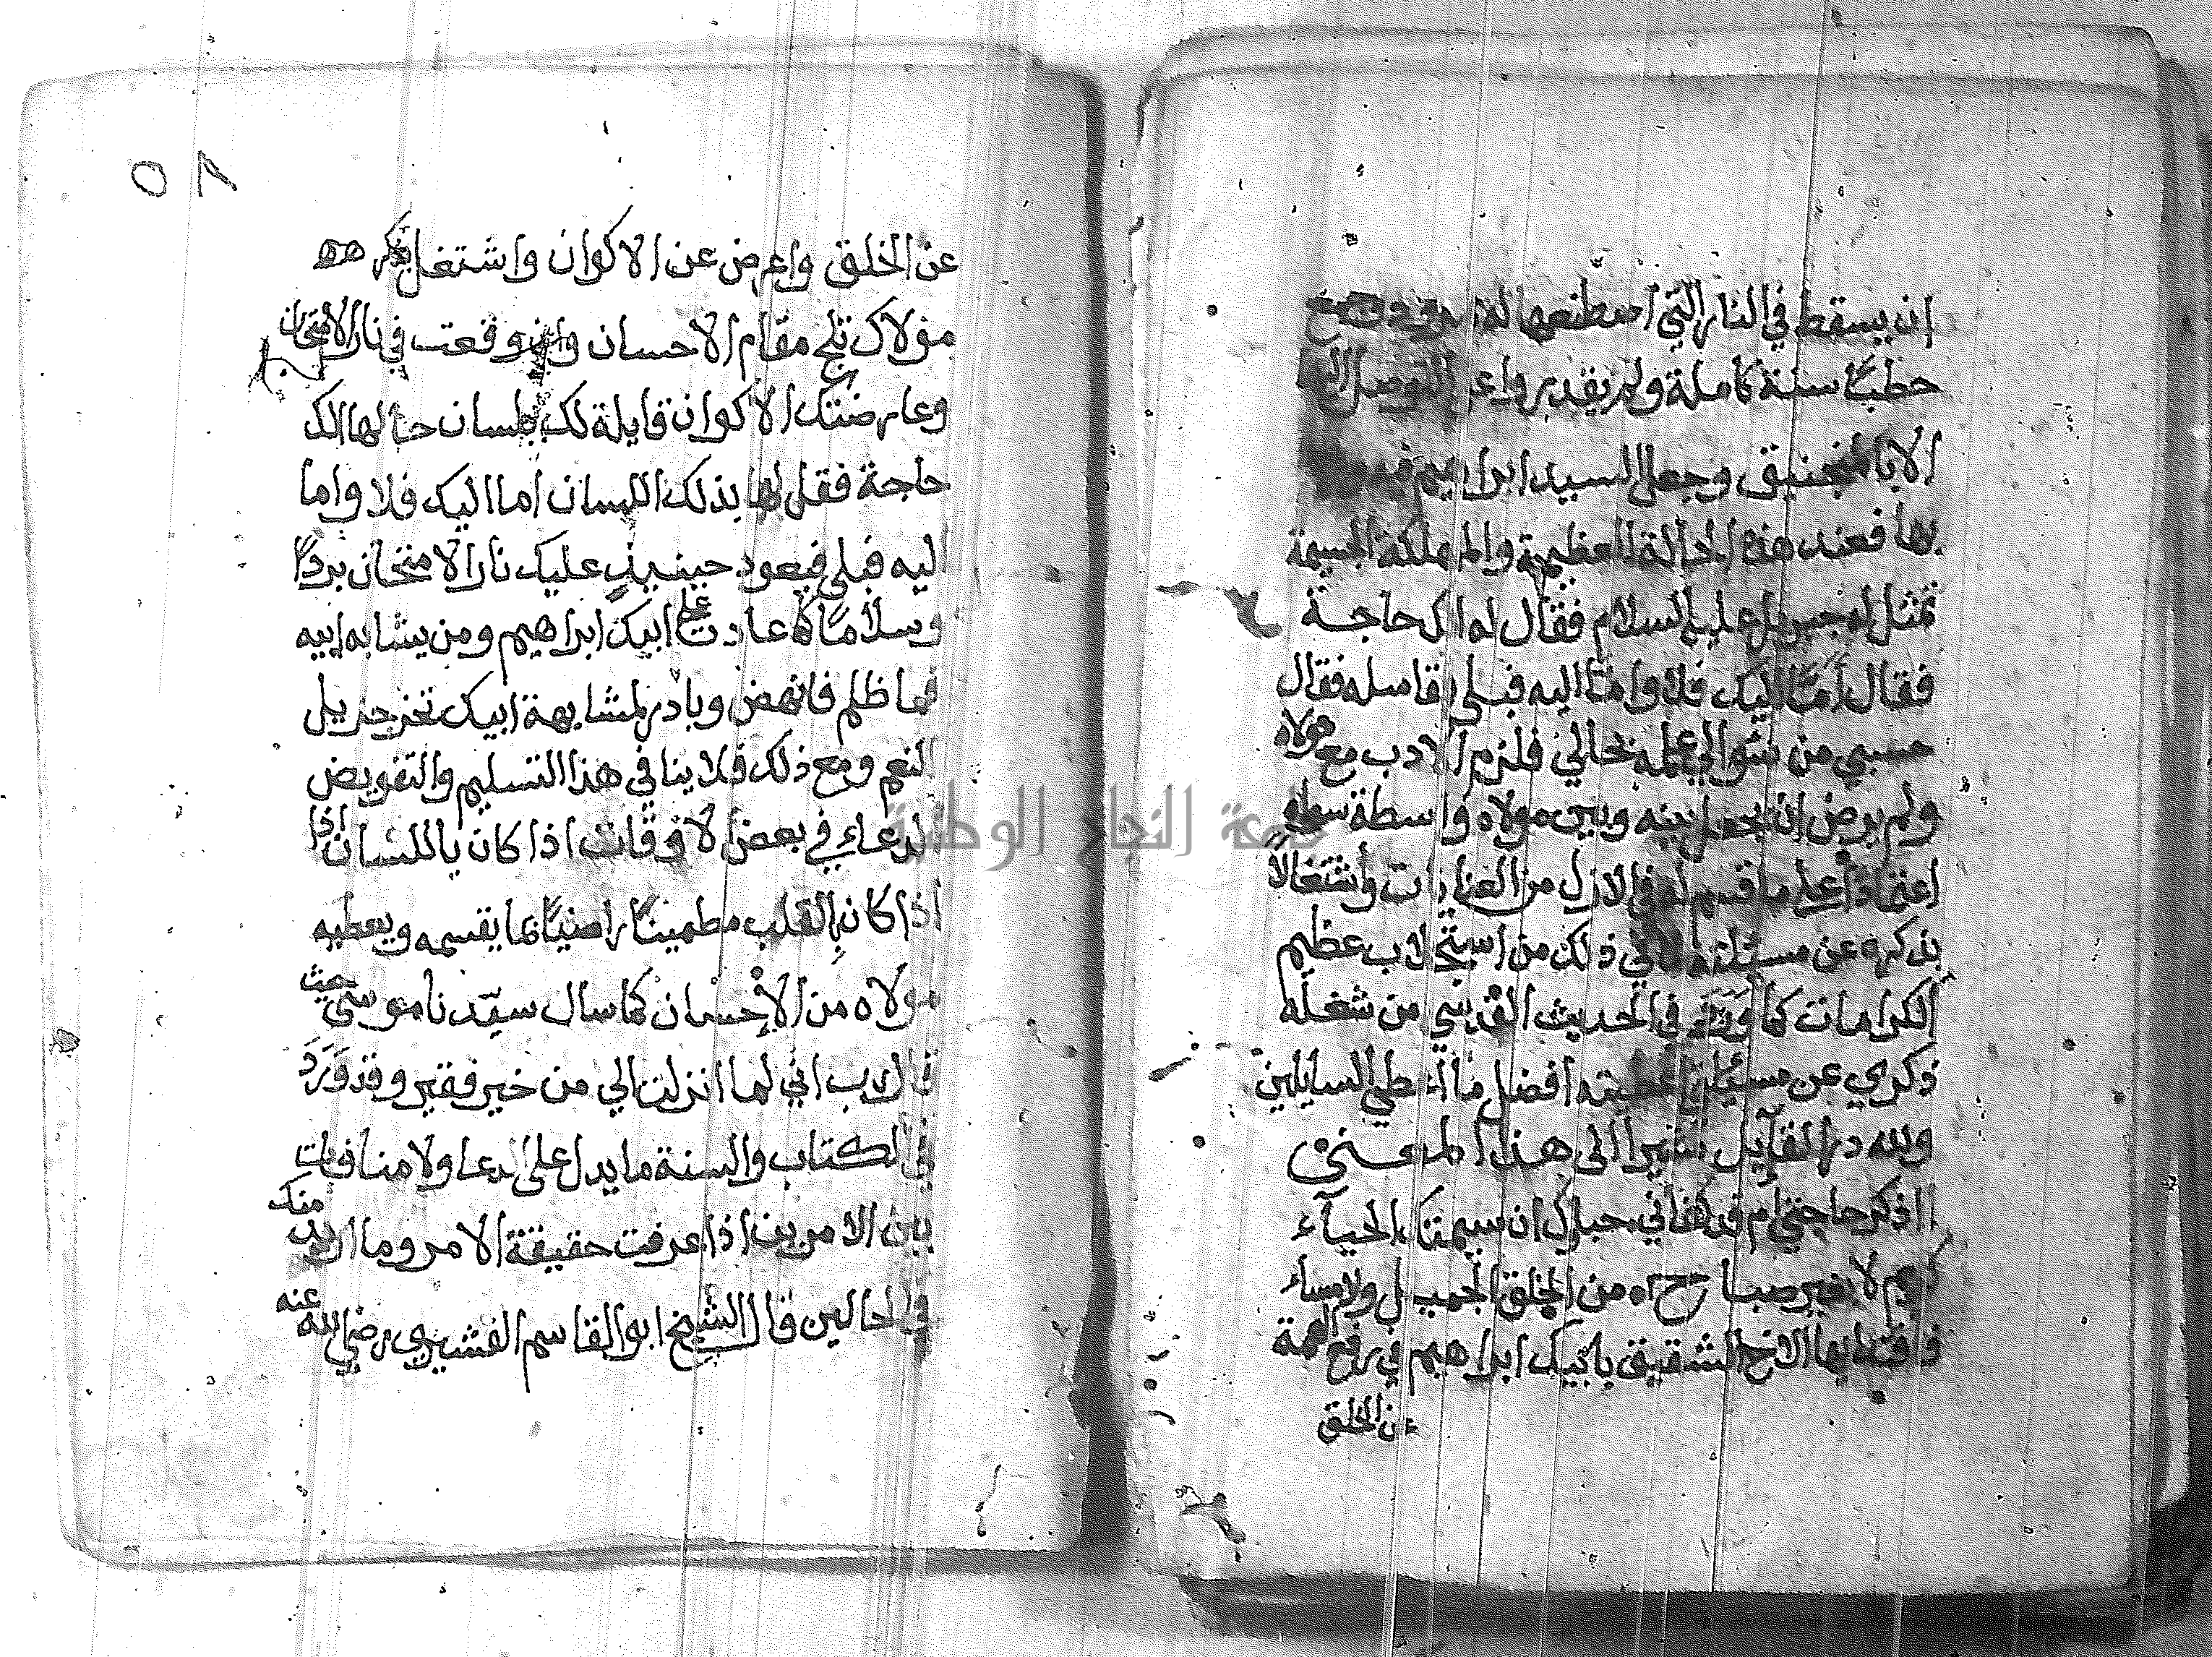 ان يسقط في النار التي اصطنعها له نمرود وجمع
حطبًا سنة كاملة ولم يقدروا على التوصل اليها
الا بالمنجنيق وجعل السيد ابراهيم
بها فعند هذه الحالة العظيمة والمهلكة الجسيمة
تمثل له جبريل عليه السلام فقال له الك حاجة
فقال أمّا اليك فلا وامّا اليه فبلى فقال
حسبي من سؤالي علمه بحالي فلزم الادب مع مولاه
ولم يرض ان يجعل بينه وبين مولاه واسطة سواه
اعتمادًا على ما قسم له في الازل من العنايات واشتغالًا
بذكره عن مسئلته لما في ذلك من استجلاب عظيم
الكرامات كما وَرَدَ في الحديث القدسي من شغله
ذكري عن مسئلتي اعطيته افضل ما اعطي السايلين
ولله در القايل مشيرا الى هذا المعنى
ااذكر حاجتي ام قد كفاني حباؤك ان سيمتك الحيآء
كريم لا يغيره صباح من الخلق الجميل ولا مساء
فاقتد ايها الاخ الشقيق بابيك ابراهيم في رفع الهمة
عن الخلق
٥٨
عن الخلق واعرض عن الاكوان واشتغل بذكر
مولاك تلج مقام الاحسان وان وقعت في نار الامتحان
وعارضتك الاكوان قايلة لك بلسان حالها الك
حاجة فقل لها بذلك اللسان اما اليك فلا واما
اليه فبلى فيعود حينيذ عليك نار الامتحان بردًا
وسلامًا كما عادت على ابيك ابراهيم ومن يشابه ابيه
فما ظلم فانهض وبادر لمشابهة ابيك تحز جزيل
النعم ومع ذلك فلا ينافي هذا التسليم والتفويض
الدعاء في بعض الاوقات اذا كان باللسان اذا
اذا كان القلب مطمينًا راضيًا بما يقسمه ويعطيه
مولاه من الاحسان كما سال سيّدنا موسى حيث
قال رب اني لما انزلت الي من خير فقير وقد وَرَدَ
في الكتاب والسنة ما يدل على الدعا ولا منافات
بين الامرين اذا عرفت حقيقة الامر وما اريد منك
في الحالين قال الشيخ ابو القاسم القشيري رضي الله عنه
جامعة النجاح الوطنية